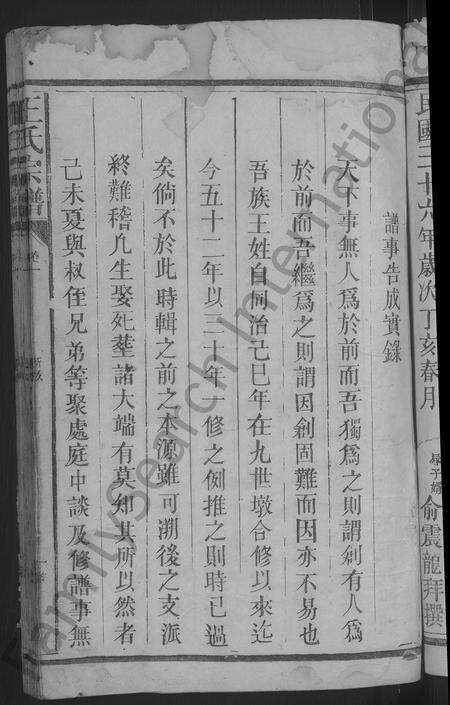 民國三十六年歲次丁亥春月
俞震龍拜撰
譜事告成實錄
天下事無人爲於前而吾獨爲之則謂創有人爲
於前而吾繼爲之則謂因創固難而因亦不易也
吾族王姓自同治己巳年在九世墩合修以來迄
今五十二年以三十年一修之例推之則時已過
矣倘不於此時輯之前之本源雖可溯後之支派
終難稽凢生娶死塟諸大端有莫知其所以然者
己未夏與叔侄兄弟等聚處庭中談及修譜事無
王氏宗譜
FamilySearch International